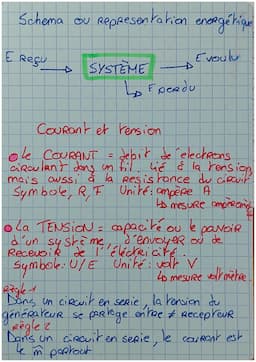 Schema ou representation energétique
E Reçu
SYSTÈME
E voulu
E perdu
Courant et tension
Le COURANT = débit de électrons
circulant dans un fil. lié à la tension
mais aussi à la resistance du circuit
Symbole, R, F Unité: ampère A
↳ mesure ampèremètre
La TENSION = capacité ou le pouvoir
d'un système, d'envoyer ou de
Recevoir de l'éléctricité.
Symbole: U/E Unité: volt V
↳ mesure voltmètre
Règle 1
Dans un circuit en serie, la tension du
générateur se partage entre ≠ recepteur
règle 2
Dans un circuit en serie, le courant est
le m̂ partout